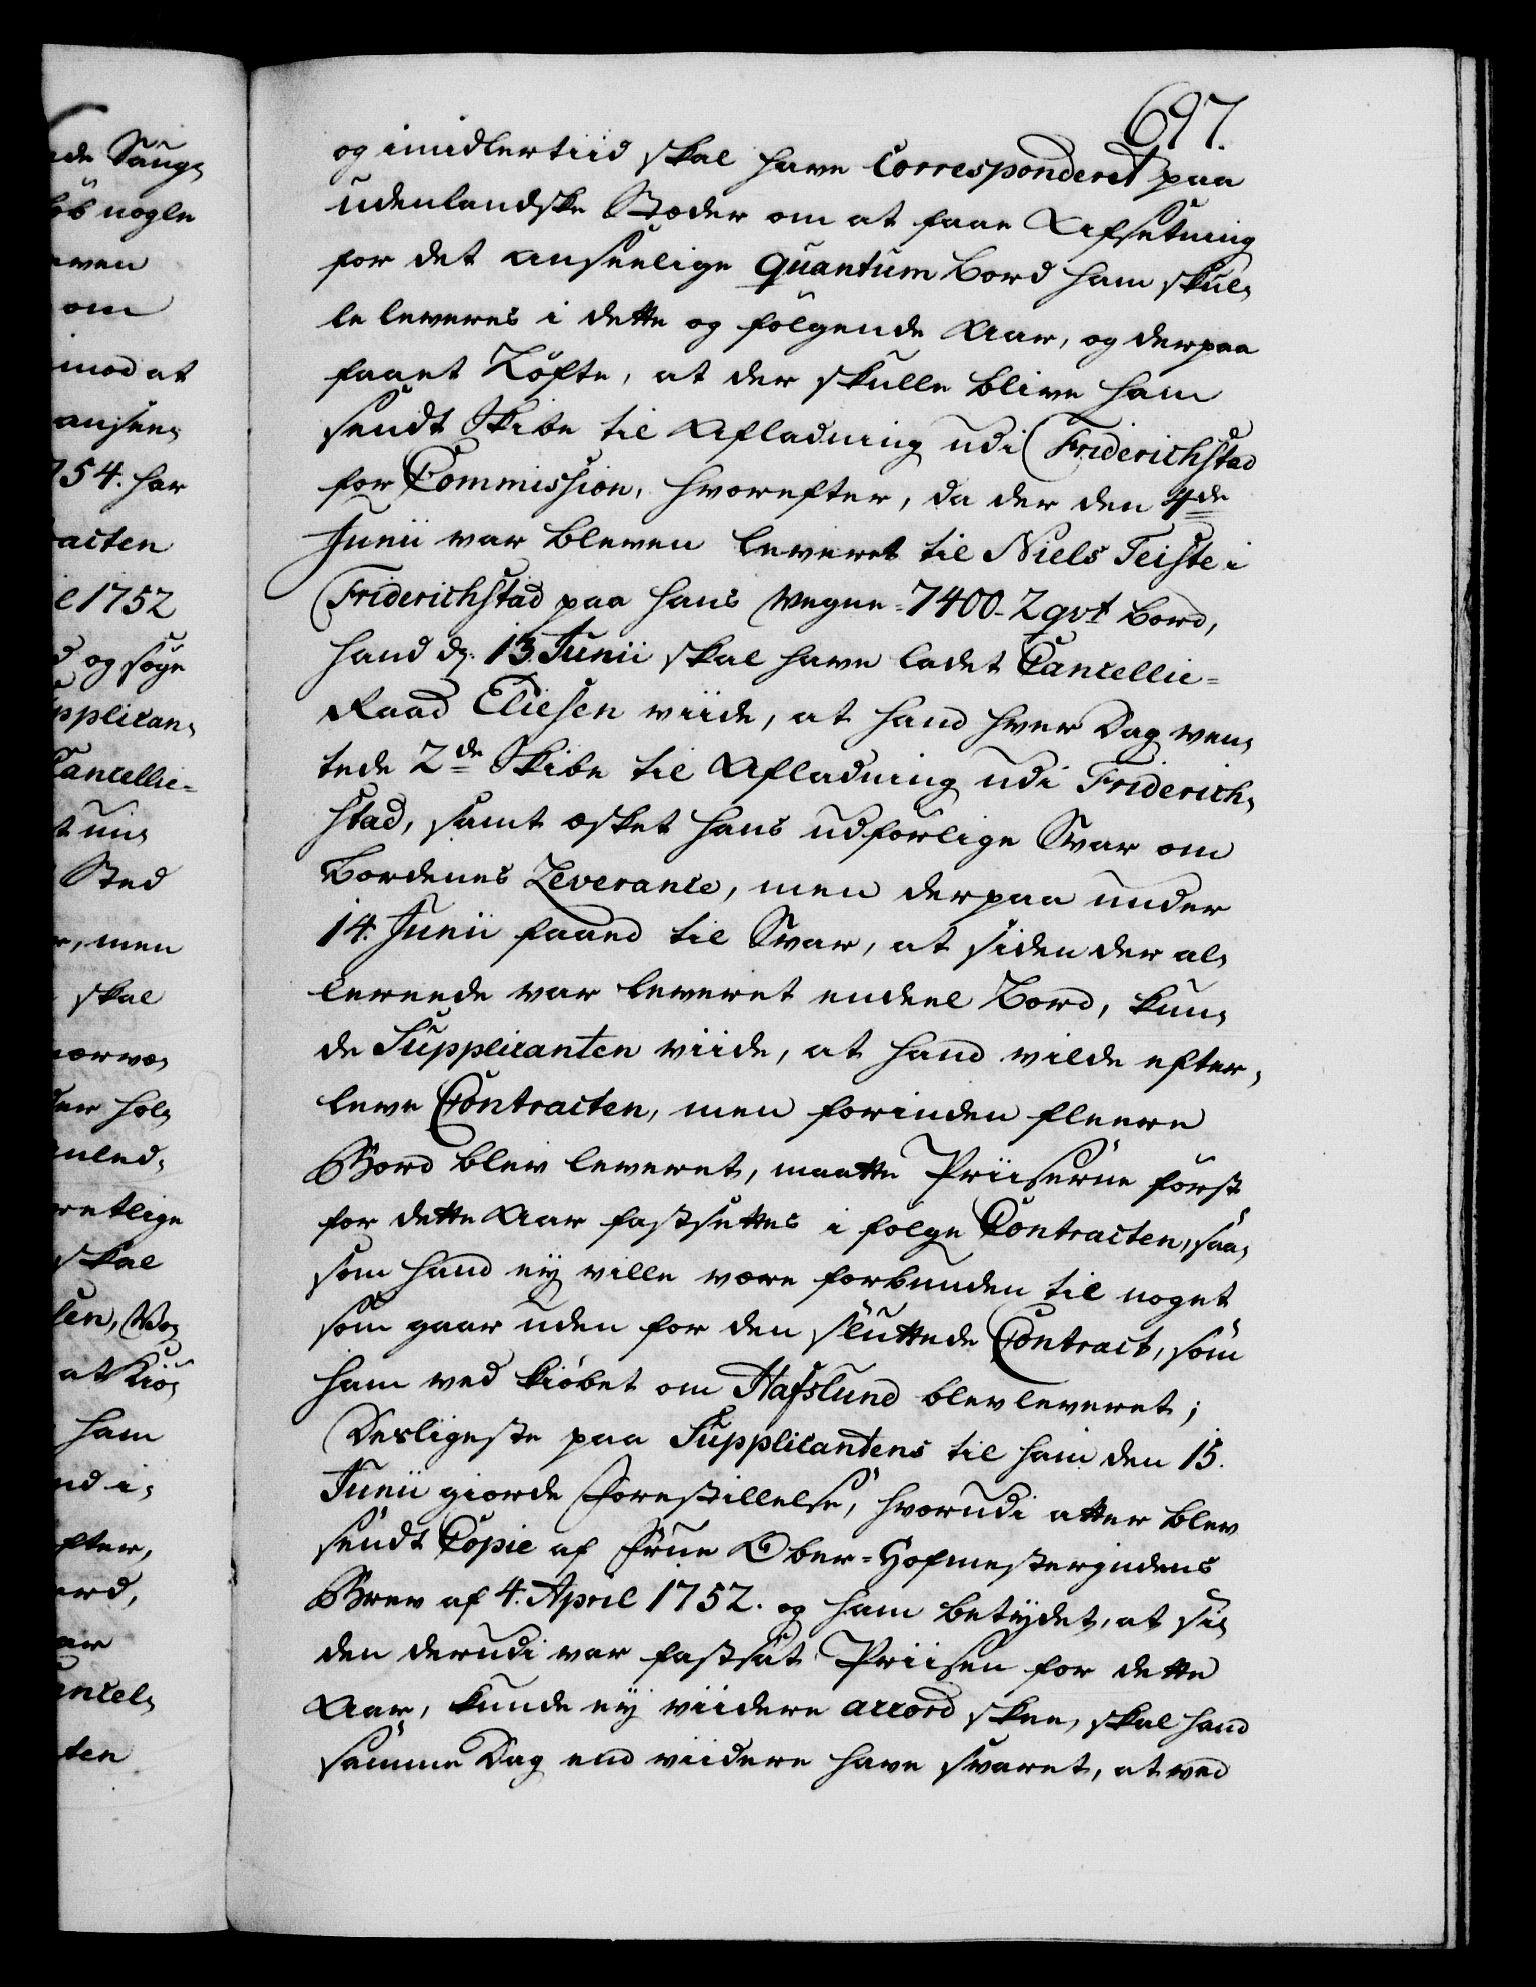 697.
og imidlertiid skal have Corresponderet paa
udenlandske Stæder om at faae Afsetning
for det anseelige Quantum Bord ham skul-
le leveres i dette og følgende Aar, og derpaa
faaet Løfte, at der skulle blive ham
sendt Skibe til Afladning udi Friderichstad
for Commission, hvorefter, da der den 4de
Junii var bleven leveret til Niels Teiste i
Friderichstad paa hans Vegne = 7400 - Zqvt Bord,
hand dz: 13. Junii skal have ladet Cancellie=
Raad Eliesen viide, at hand hver Dag ven-
tede 2de Skibe til Afladning udi Friderich-
stad, samt æsket hans udførlige Svar om
Bordenes Leverance, men derpaa under
14. Junii faaed til Svar, at siden der al-
lereede var leveret endeel Bord, kun-
de Supplicanten viide, at hand vilde efter-
leve Contracten, men forinden fleere
Bord blev leveret, maatte Priiserne først
for dette Aar fastsættes i følge Contracten, saa-
som hand ey ville være forbunden til noget
som gaar uden for den sluttede Contract, som
ham ved Kiøbet om Hafslund blev leveret;
Desligeste paa Supplicantens til ham den 15.
Junii giorde Forestillelse, hvorudi atter blev
sendt Copie af Frue Ober-Hofmesterindens
Brev af 4. April 1752. og ham betydet, at si-
den derudi var fastsat Priisen for dette
Aar, kunde ey viidere accord skee, skal hand
samme Dag end viidere have svaret, at ved